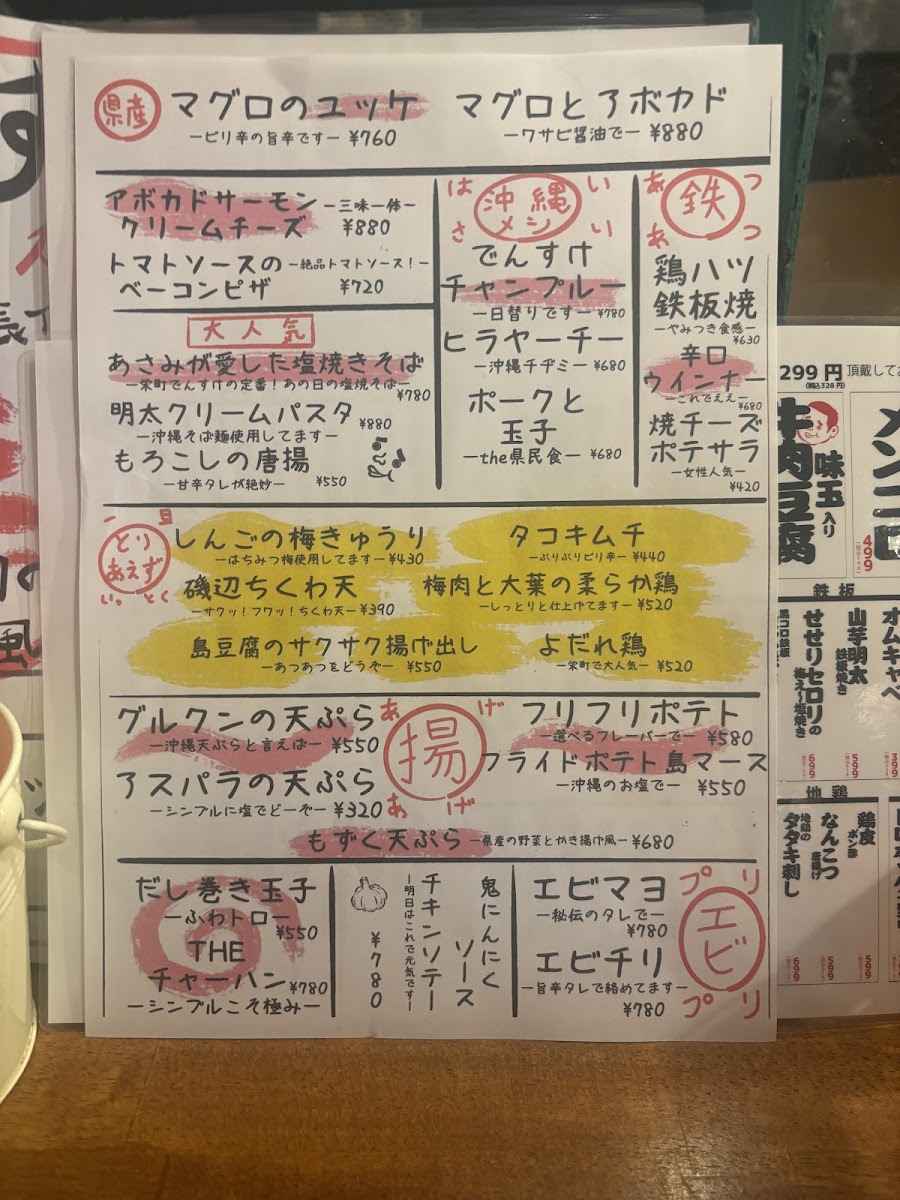 県産
マグロのユッケ
ーピリ辛の旨辛ですー ¥760
マグロとアボカド
ーワサビ醤油でー ¥880
アボカドサーモン
クリームチーズ
ー三味一体ー
¥880
トマトソースの
ベーコンピザ
ー絶品トマトソース!ー
¥720
大人気
あさみが愛した塩焼きそば
ー栄町でんすけの定番!あの日の塩焼そばー
¥780
明太クリームパスタ
ー沖縄そば麺使用してますー
¥880
もろこしの唐揚
ー甘辛タレが絶妙ー ¥550
はいさい
沖縄
メシ
でんすけ
チャンプルー
ー日替りですー ¥780
ヒラヤーチー
ー沖縄チヂミー ¥680
ポークと
玉子
ーthe県民食ー ¥680
あつあつ
鉄
鶏ハツ
鉄板焼
ーやみつき食感ー
¥630
辛口
ウインナー
ーこれでええー
¥680
焼チーズ
ポテサラ
ー女性人気ー
¥420
一旦
とり
あえず
いっとく
しんごの梅きゅうり
ーはちみつ梅使用してますー ¥430
タコキムチ
ーぷりぷりピリ辛ー ¥440
磯辺ちくわ天
ーサクッ!フワッ!ちくわ天ー ¥390
梅肉と大葉の柔らか鶏
ーしっとりと仕上げてますー ¥520
島豆腐のサクサク揚げ出し
ーあつあつをどうぞー ¥550
よだれ鶏
ー栄町で大人気ー ¥520
グルクンの天ぷら
ー沖縄天ぷらと言えばー ¥550
アスパラの天ぷら
ーシンプルに塩でどーぞー ¥320
あげ
揚
あげ
フリフリポテト
ー選べるフレーバーでー ¥580
フライドポテト島マース
ー沖縄のお塩でー ¥550
もずく天ぷら ー県産の野菜とかき揚げ風ー ¥680
だし巻き玉子
ーふわトロー
¥550
THE
チャーハン ¥780
ーシンプルこそ極みー
鬼にんにく
ソース
チキンソテー
ー明日はこれで元気ですー
¥780
エビマヨ
ー秘伝のタレでー
¥780
エビチリ
ー旨辛タレで絡めてますー
¥780
プリ
エビ
プリ
299円
(税込328円)
頂戴してお
味玉入り
牛肉豆腐
メンコロ
499
鉄板
オムキャベ
山芋明太
鉄板焼き
599
せせりセロリの
699
地鶏
鶏皮
ポン酢
599
なんこつ
唐揚げ
599
地鶏の
タタキ刺し
699